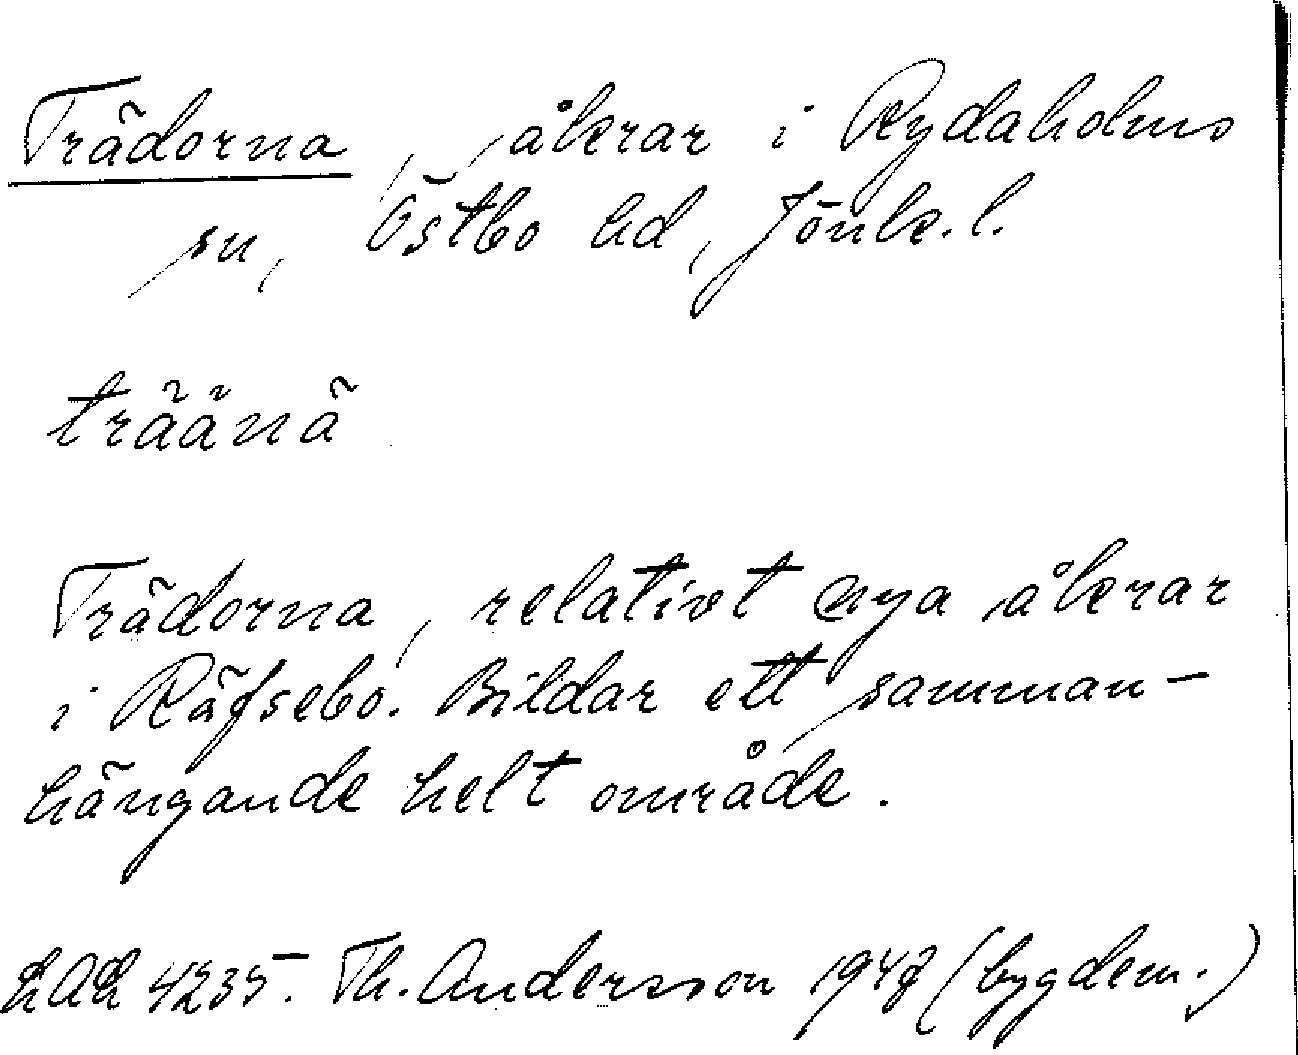 Trädorna, åkrar i Rydaholms
sn, Östbo hd, Jönk. l.
träänä
Trädorna, relativt nya åkrar
i Räfsebo. Bildar ett samman-
hängande helt område.
LAL 4235. Th. Andersson 1948 (bygdem.)